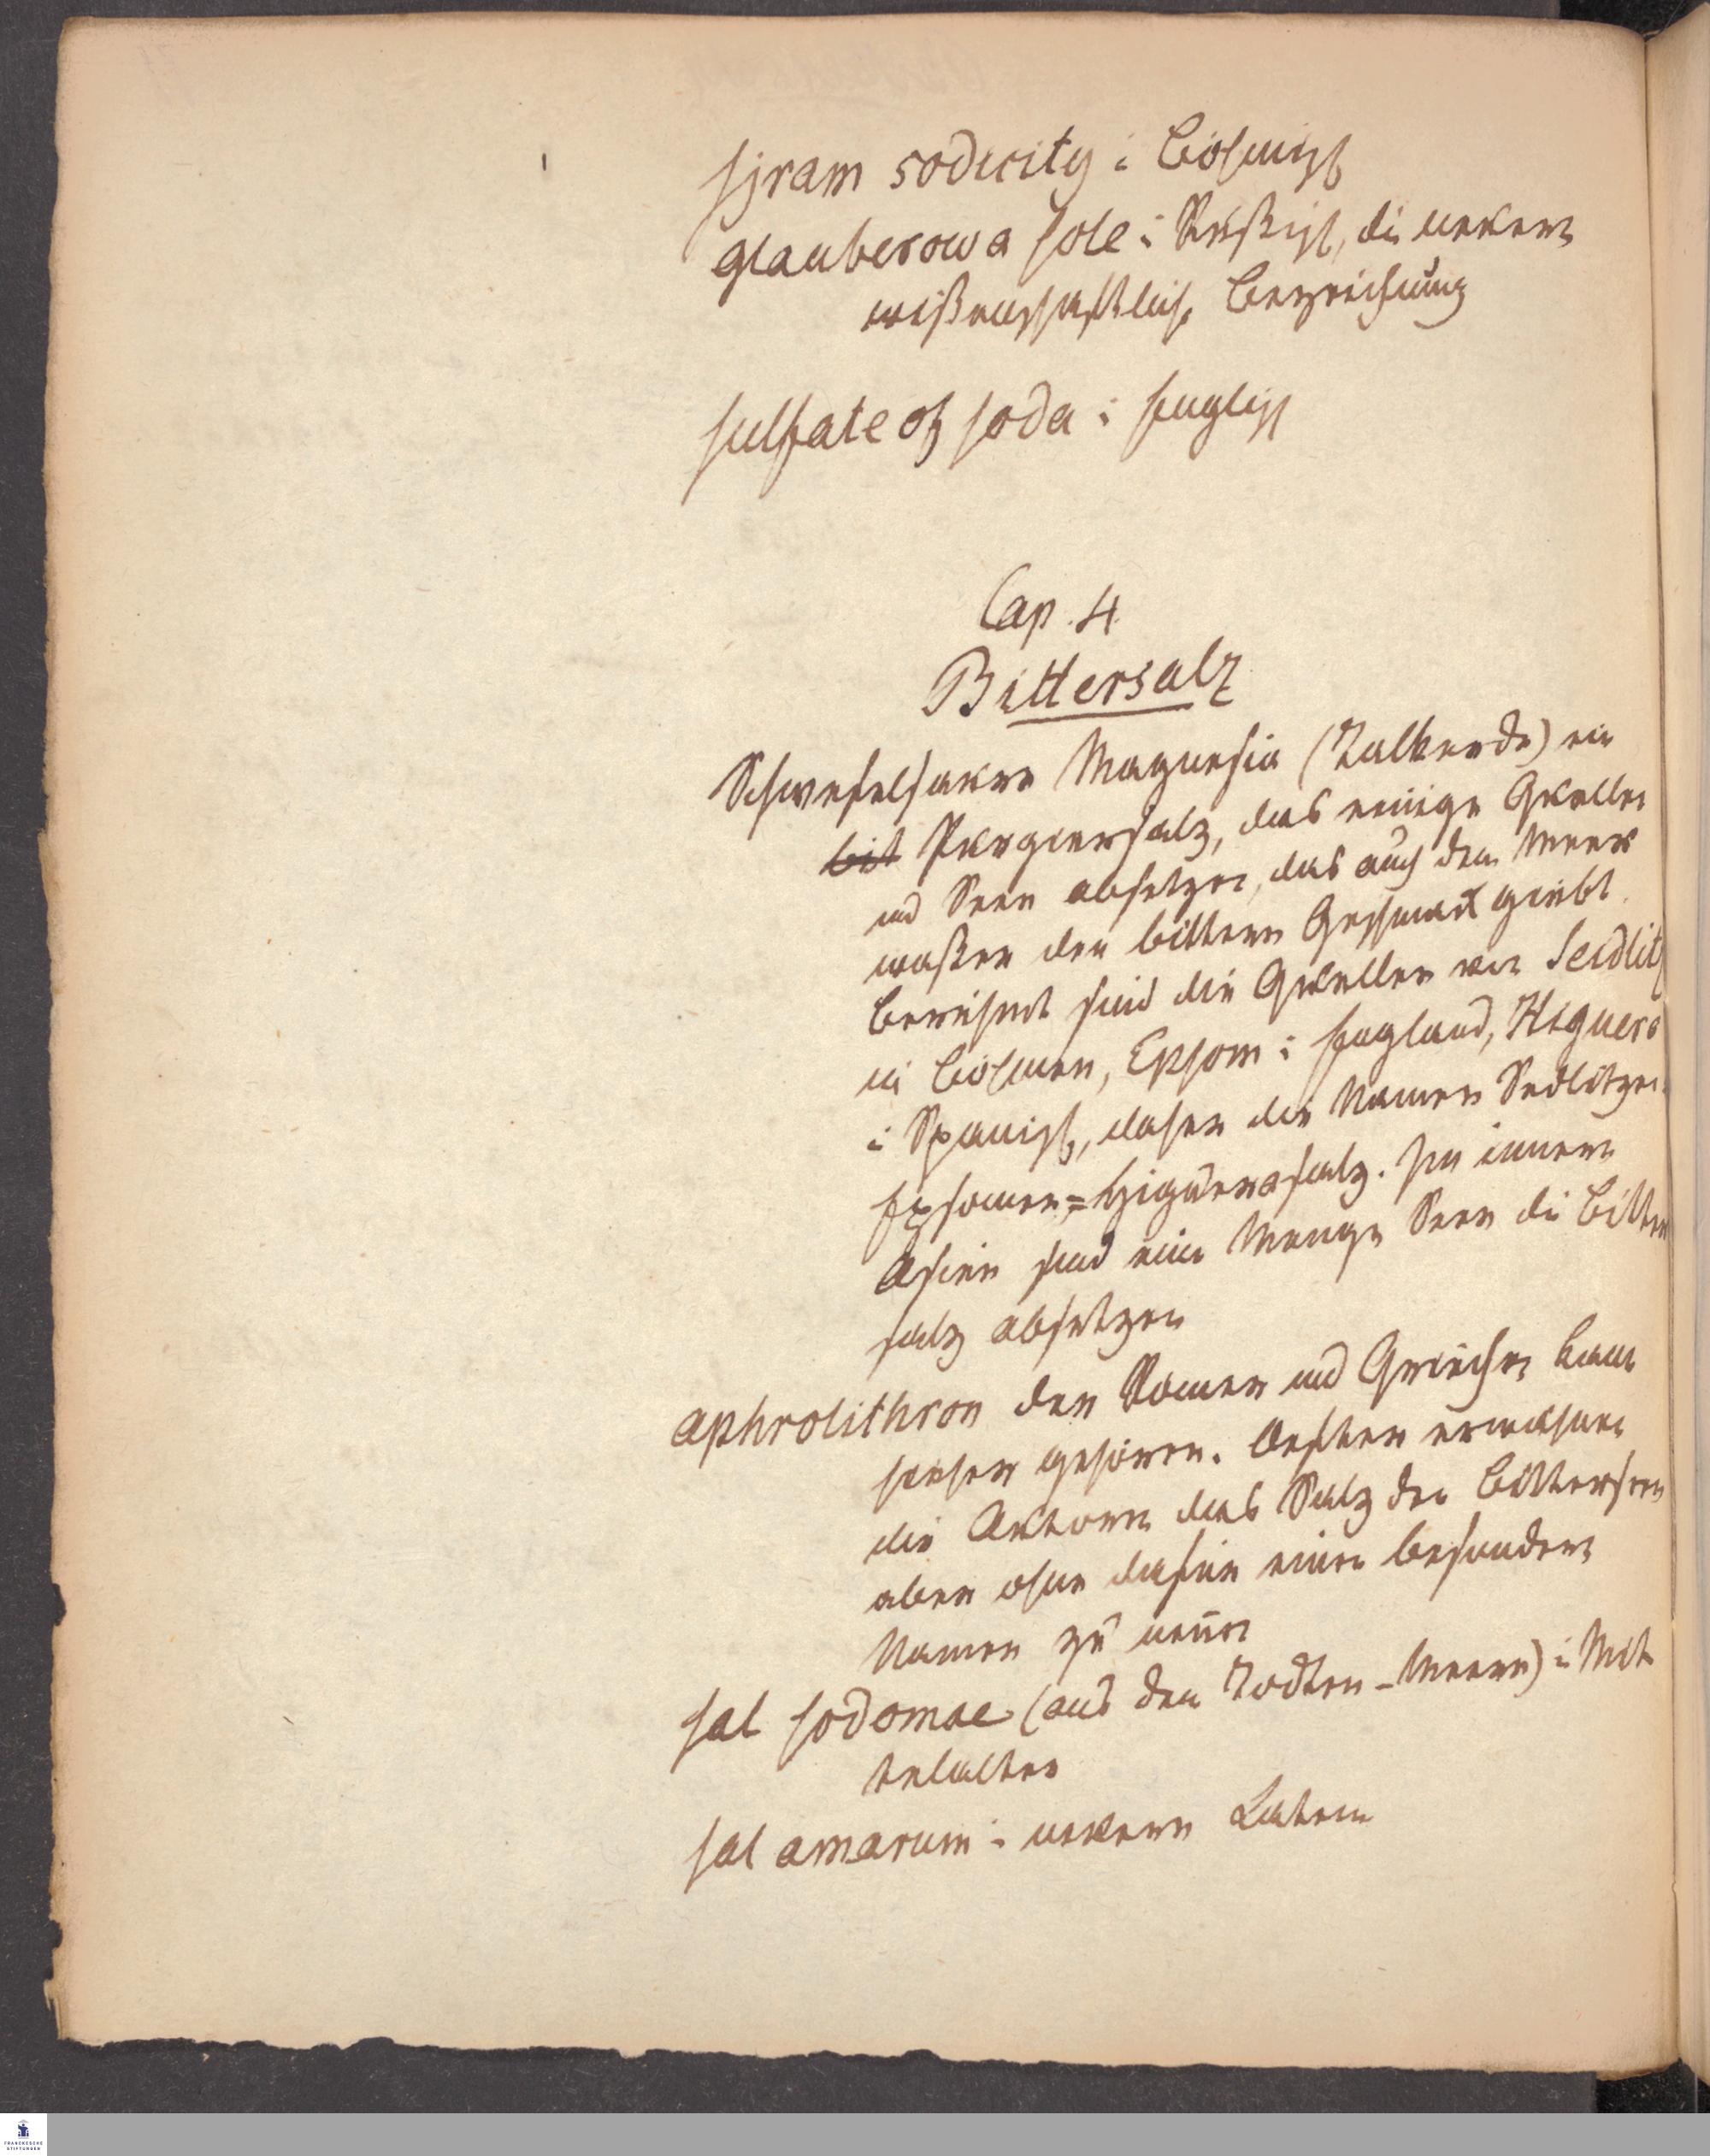 sjram sodicity i Böhmisch
glauberowa sole i Rußisch, die neuere
wißenschaftliche Bezeichnung
sulfate of soda i Englisch
Cap. 4.
Bittersalz
Schwefelsaure Magnesia (Talkerde) ein
bit Purgiersalz, das einige Quellen
und Seen absetzen, das auch dem Meer
waßer den bittern Geschmack giebt.
Berühmt sind die Quellen von Seidlitz
in Böhmen, Epsom i England, Higuera
i Spanisch, daher die Namen Sedlitzer
Epsomer-Higuerasalz. Im innern
Asien sind eine Menge Seen die Bitter
salz absetzen
aphrolithron der Römer und Griechen kann
hieher gehören. Oefter erwähnen
die Autoren das Salz der Bitterseen
aber ohne dafür einen besondern
Namen zu nenen
sal sodomae (aus dem Todten-Meere) i Mit
telalter
sal amarum i neuern Latein
FRANCKESCHE
STIFTUNGEN